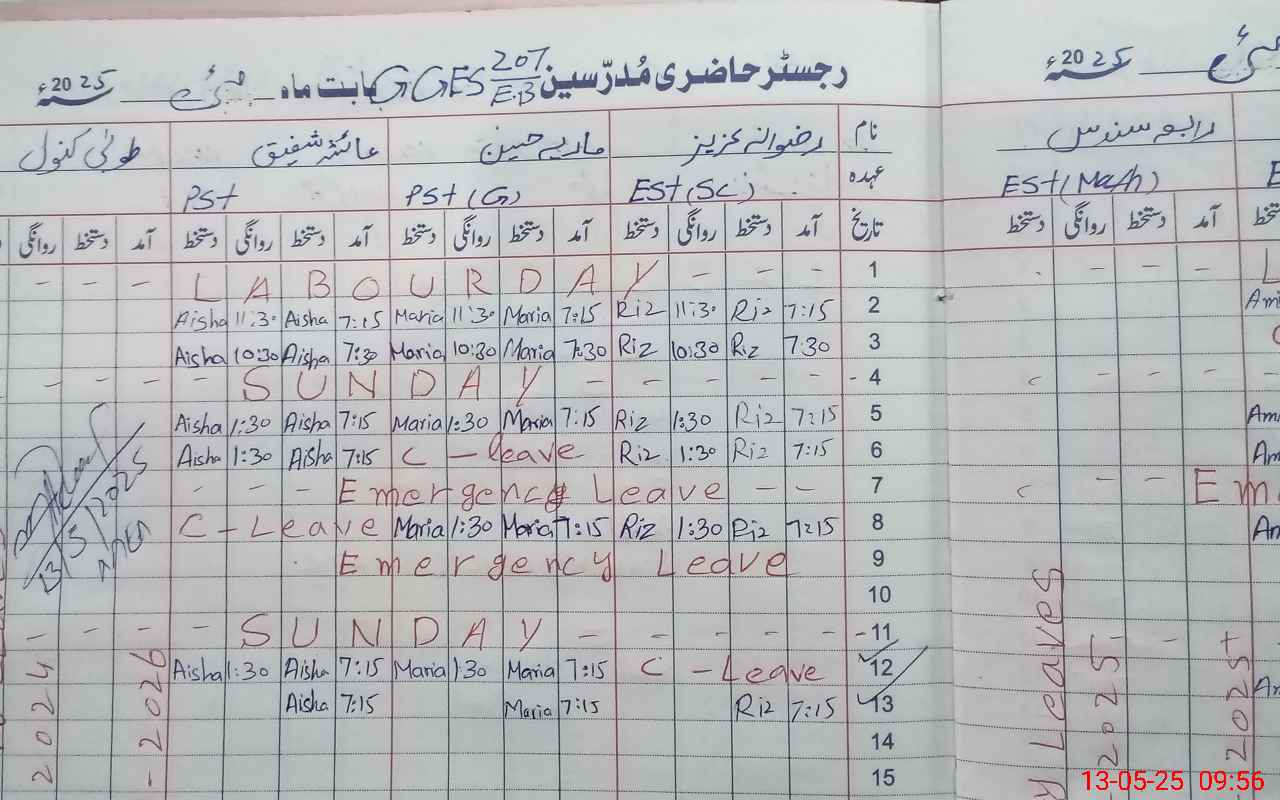 رجسٹر حاضری مُدرّسین GGES 207/E.B بابت ماہ مئی 2025ء
2025ء مئی
نام رضوانہ عزیز ماریہ حسین عائشہ شفیق طوبیٰ کنول
رابعہ سندس
عہدہ ESt (Sc) PSt (G) PSt
ESt (Math)
تاریخ آمد دستخط روانگی دستخط آمد دستخط روانگی دستخط آمد دستخط روانگی دستخط آمد دستخط روانگی
آمد دستخط روانگی دستخط
- - - L A B O U R D A Y - - - 1
Aisha 11:30 Aisha 7:15 Maria 11:30 Maria 7:15 Riz 11:30 Riz 7:15 2
Aisha 10:30 Aisha 7:30 Maria 10:30 Maria 7:30 Riz 10:30 Riz 7:30 3
- - - - S U N D A Y - - - - - - 4
Aisha 1:30 Aisha 7:15 Maria 1:30 Maria 7:15 Riz 1:30 Riz 7:15 5
Aisha 1:30 Aisha 7:15 C - leave Riz 1:30 Riz 7:15 6
- - - Emergency Leave - - 7
C - Leave Maria 1:30 Maria 7:15 Riz 1:30 Riz 7:15 8
Emergency Leave 9
10
- - - - S U N D A Y - - - - - - 11
Aisha 1:30 Aisha 7:15 Maria 1:30 Maria 7:15 C - Leave 12
Aisha 7:15 Maria 7:15 Riz 7:15 13
14
15
13/5/2025
2024
- 2026
Leaves
2025
2025
13-05-25 09:56